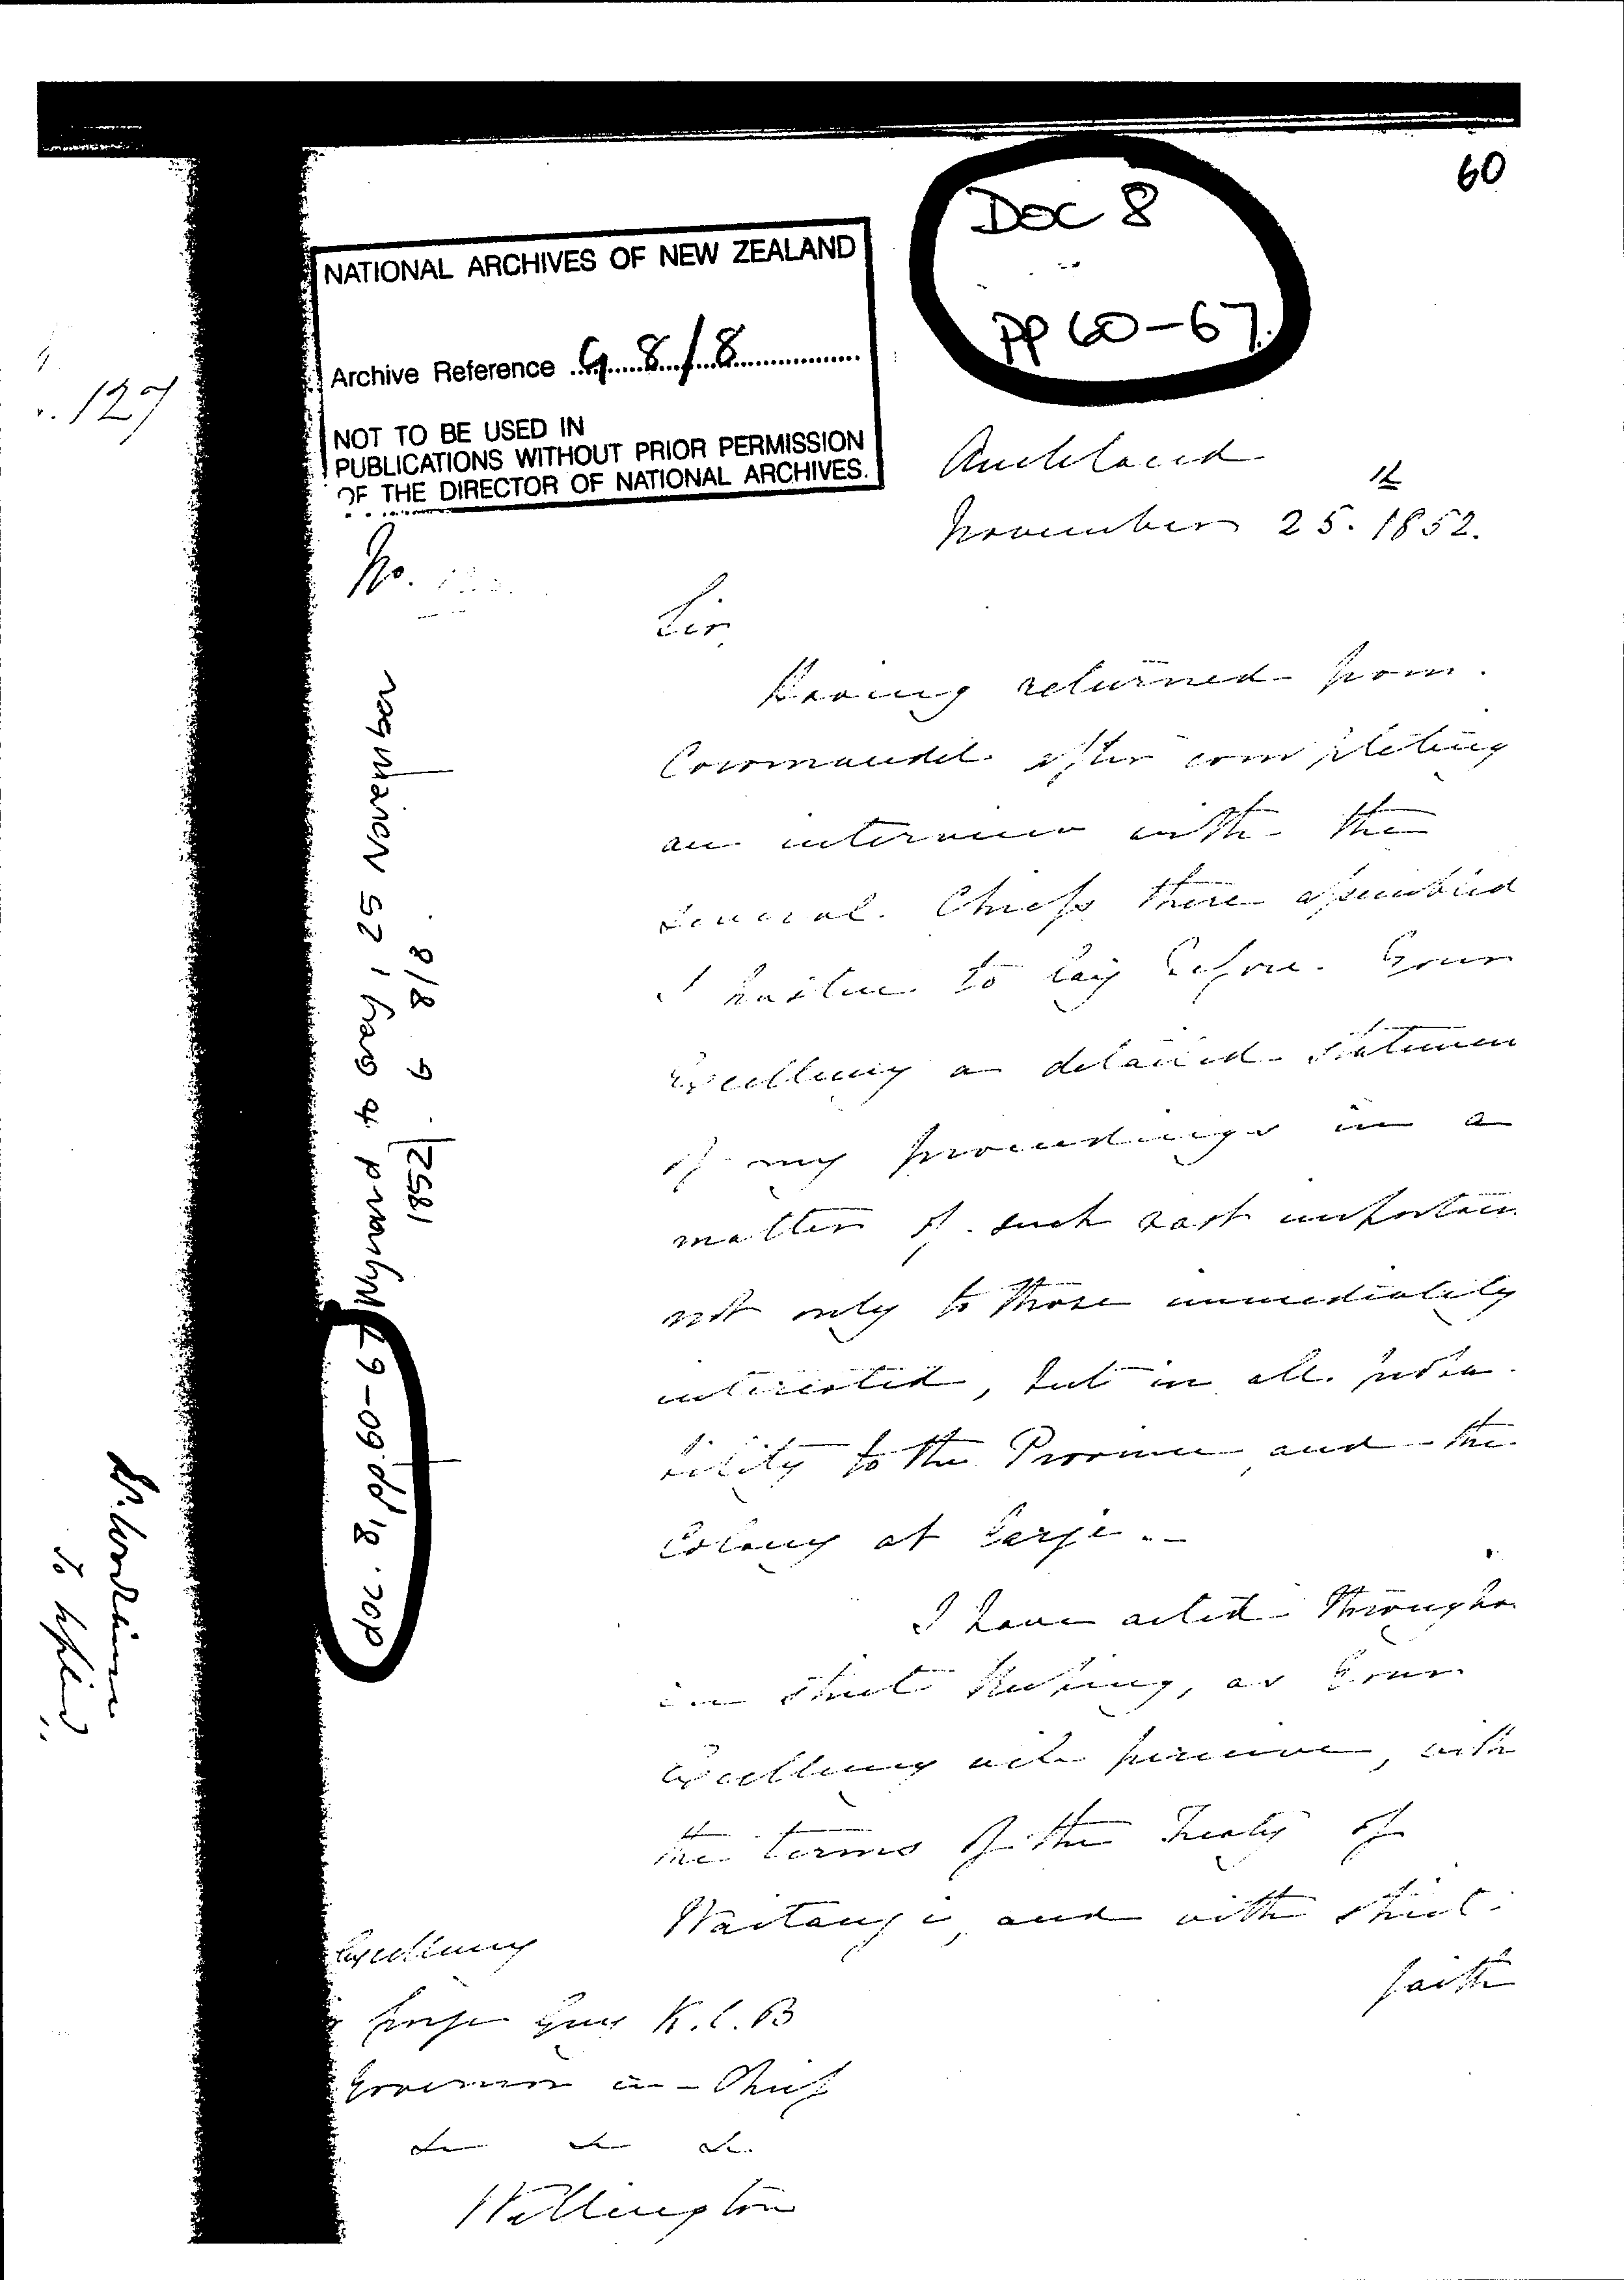 60
DOC 8
PP 60-67.
NATIONAL ARCHIVES OF NEW ZEALAND
Archive Reference G 8/8
NOT TO BE USED IN
PUBLICATIONS WITHOUT PRIOR PERMISSION
OF THE DIRECTOR OF NATIONAL ARCHIVES.
127
Auckland
November 25.th 1852.
No.
Sir,
Having returned from
Coromandel after completing
an interview with the
several Chiefs there assembled
I hasten to lay before Your
Excellency a detailed statemen
of my proceedings in a
matter of such vast importan
not only to those immediately
interested, but in all proba-
bility to the Province, and the
Colony at large.-
I have acted througho
in strict keeping, as Your
Excellency will perceive, with
the terms of the Treaty of
Waitangi, and with strict
faith
Excellency
George Grey K.C.B
Governor in-Chief
&c &c &c.
Wellington
doc. 8, pp. 60-67 Wynard to Grey, 25 November
1852. G 8/8.